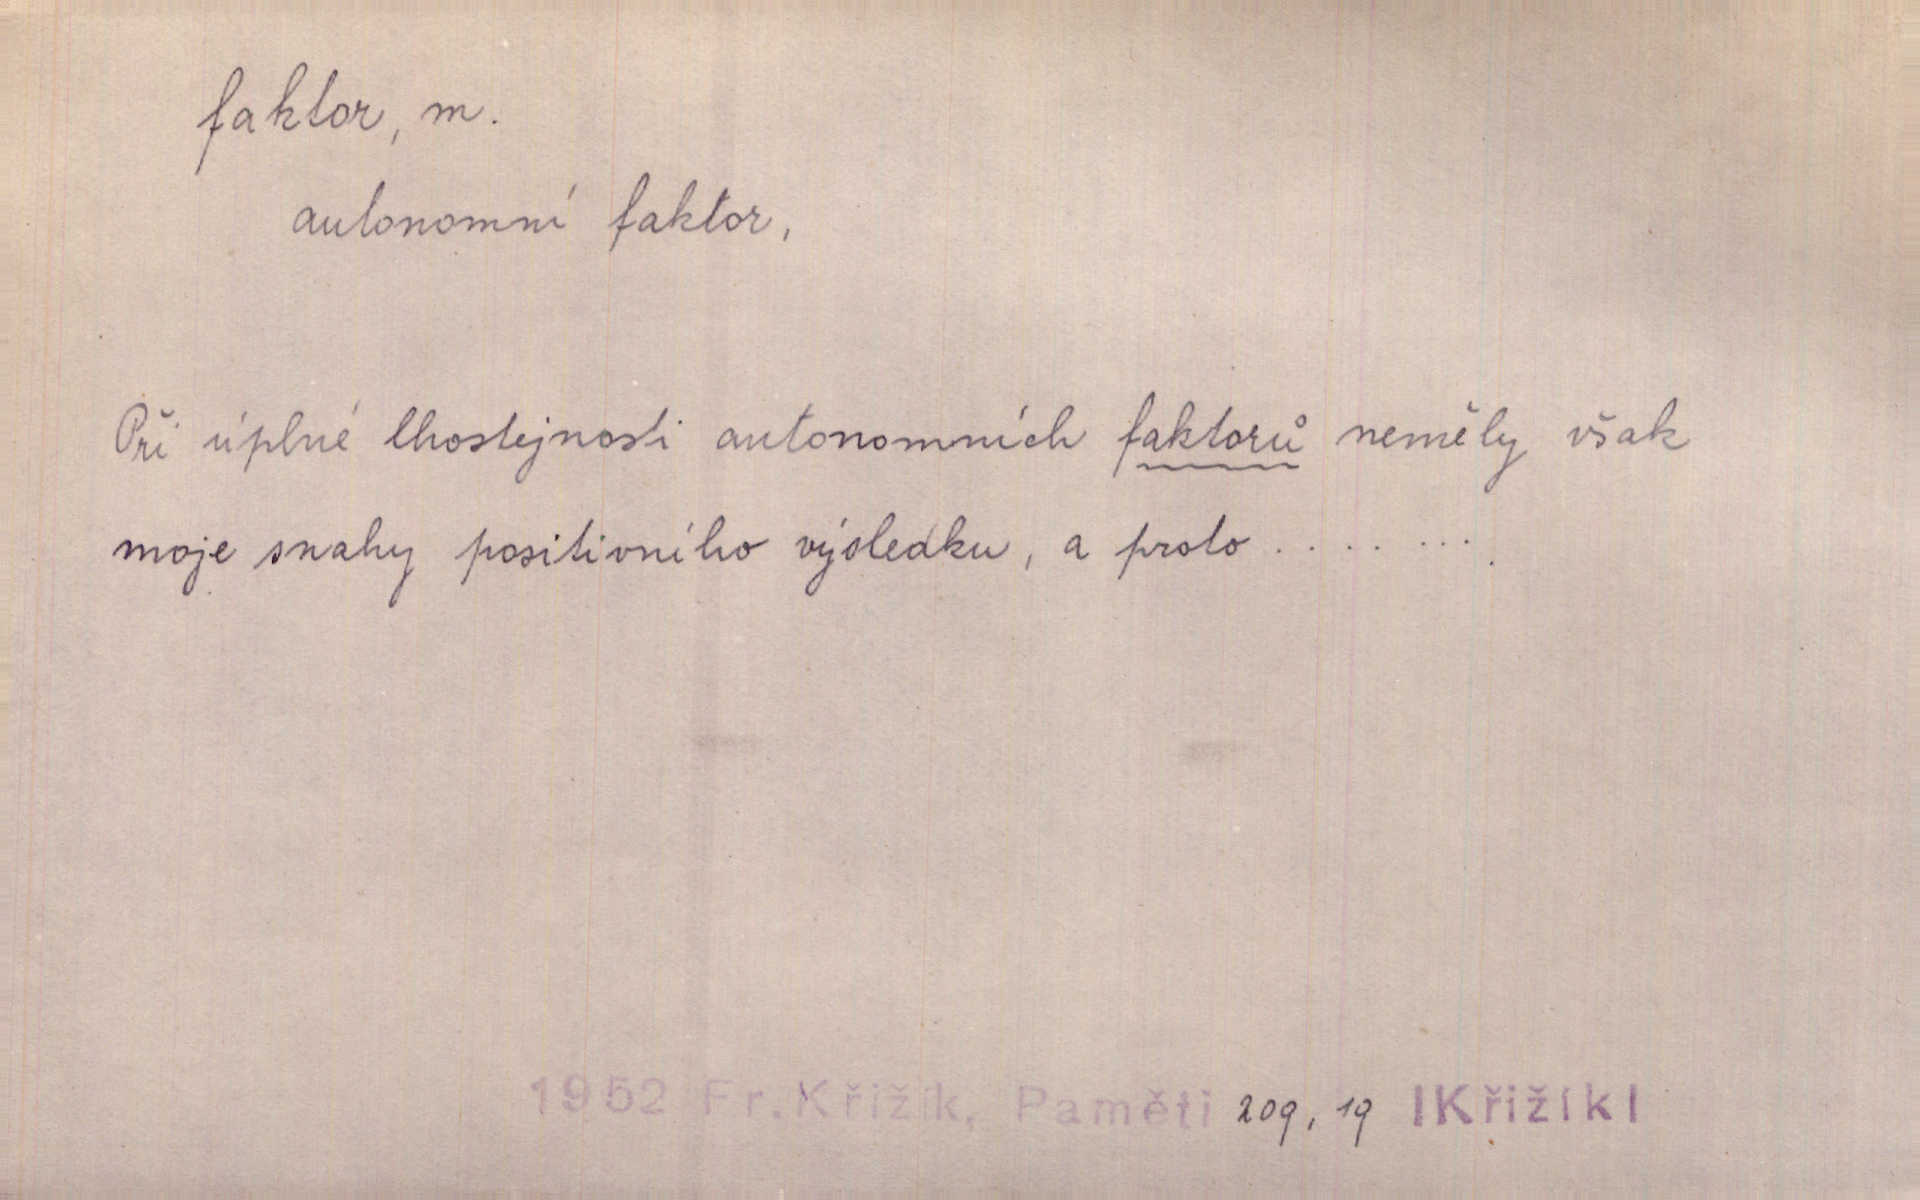 faktor, m.
autonomní faktor,
Při úplné lhostejnosti autonomních faktorů neměly však
moje snahy positivního výsledku, a proto . . . . . . . .
1952 Fr. Křižík, Paměti 209, 19 |Křižík|